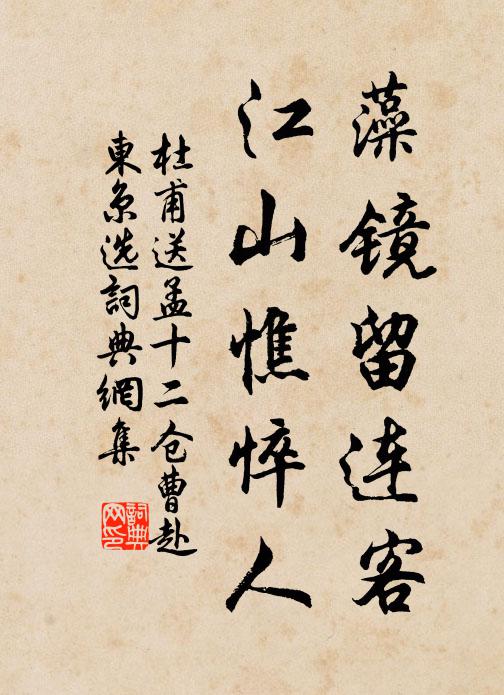 藻镜留连客
江山憔悴人
杜甫送孟十二仓曹赴
東京选詞典網集
詞典
网印